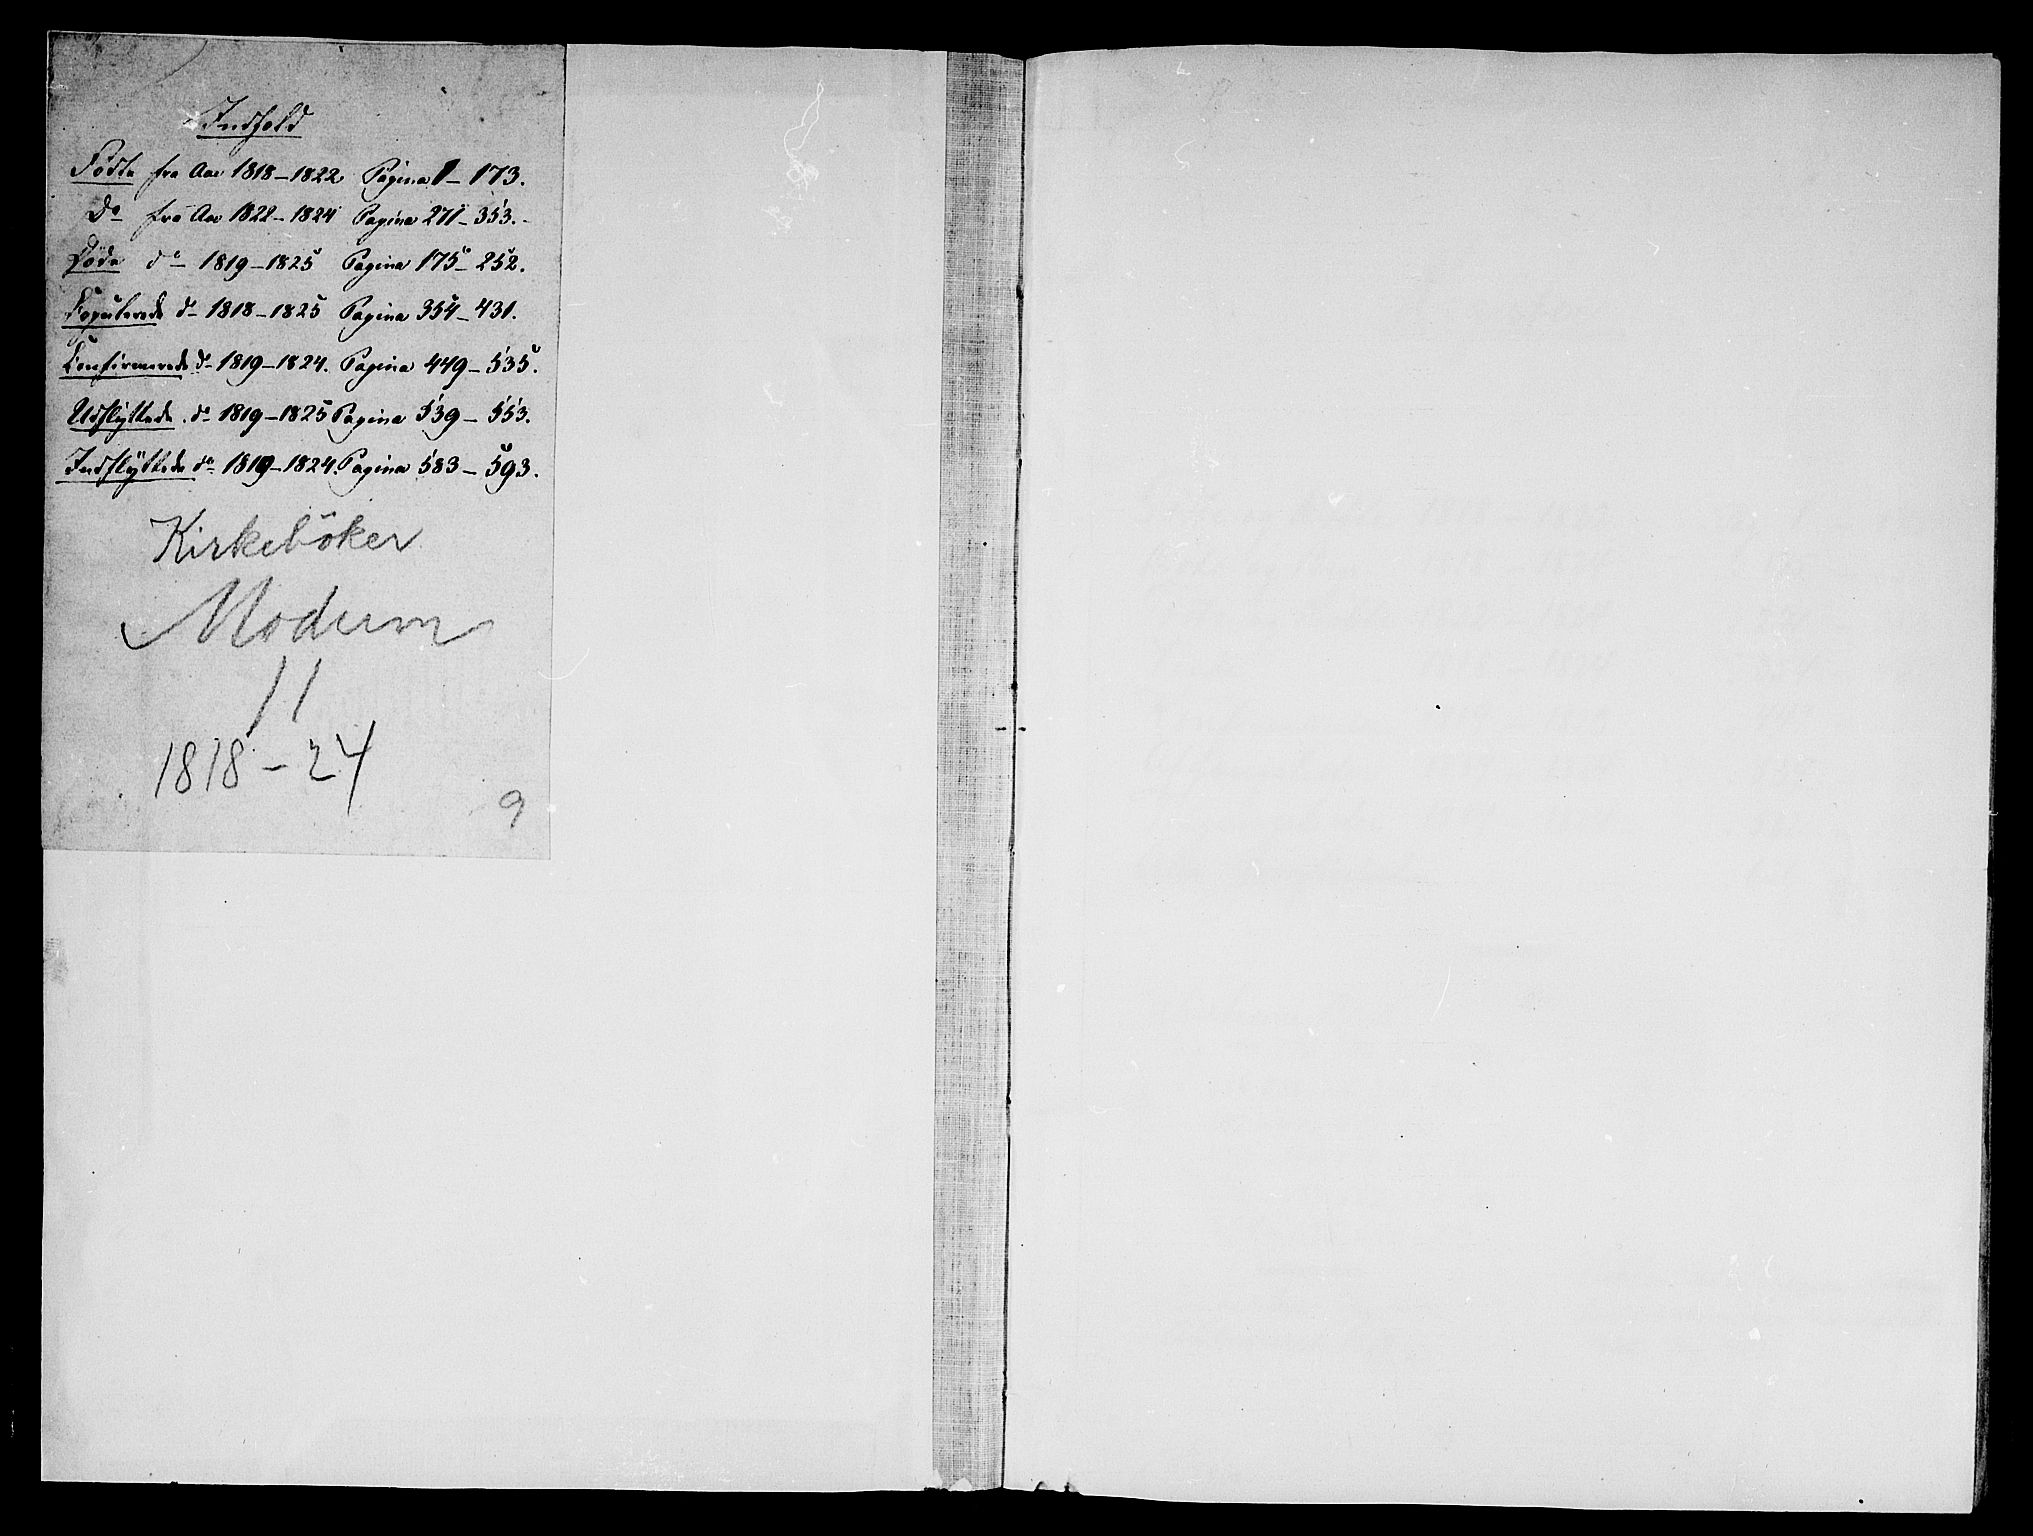 Indhold
Födte fra Aar 1818 – 1822 Pagina 1 – 173.
do fra Aar 1822 – 1824 Pagina 271 – 353.
Döde do 1819 – 1825 Pagina 175 – 252.
Copulerede do 1818 – 1825 Pagina 354 – 431.
Confirmerede do 1819 – 1824. Pagina 449 – 535.
Udflyttede. do 1819 – 1825 Pagina 539 – 553.
Indflyttede do 1819 – 1824. Pagina 583 – 593.
Kirkebőker
Modum
11
1818 – 24
9